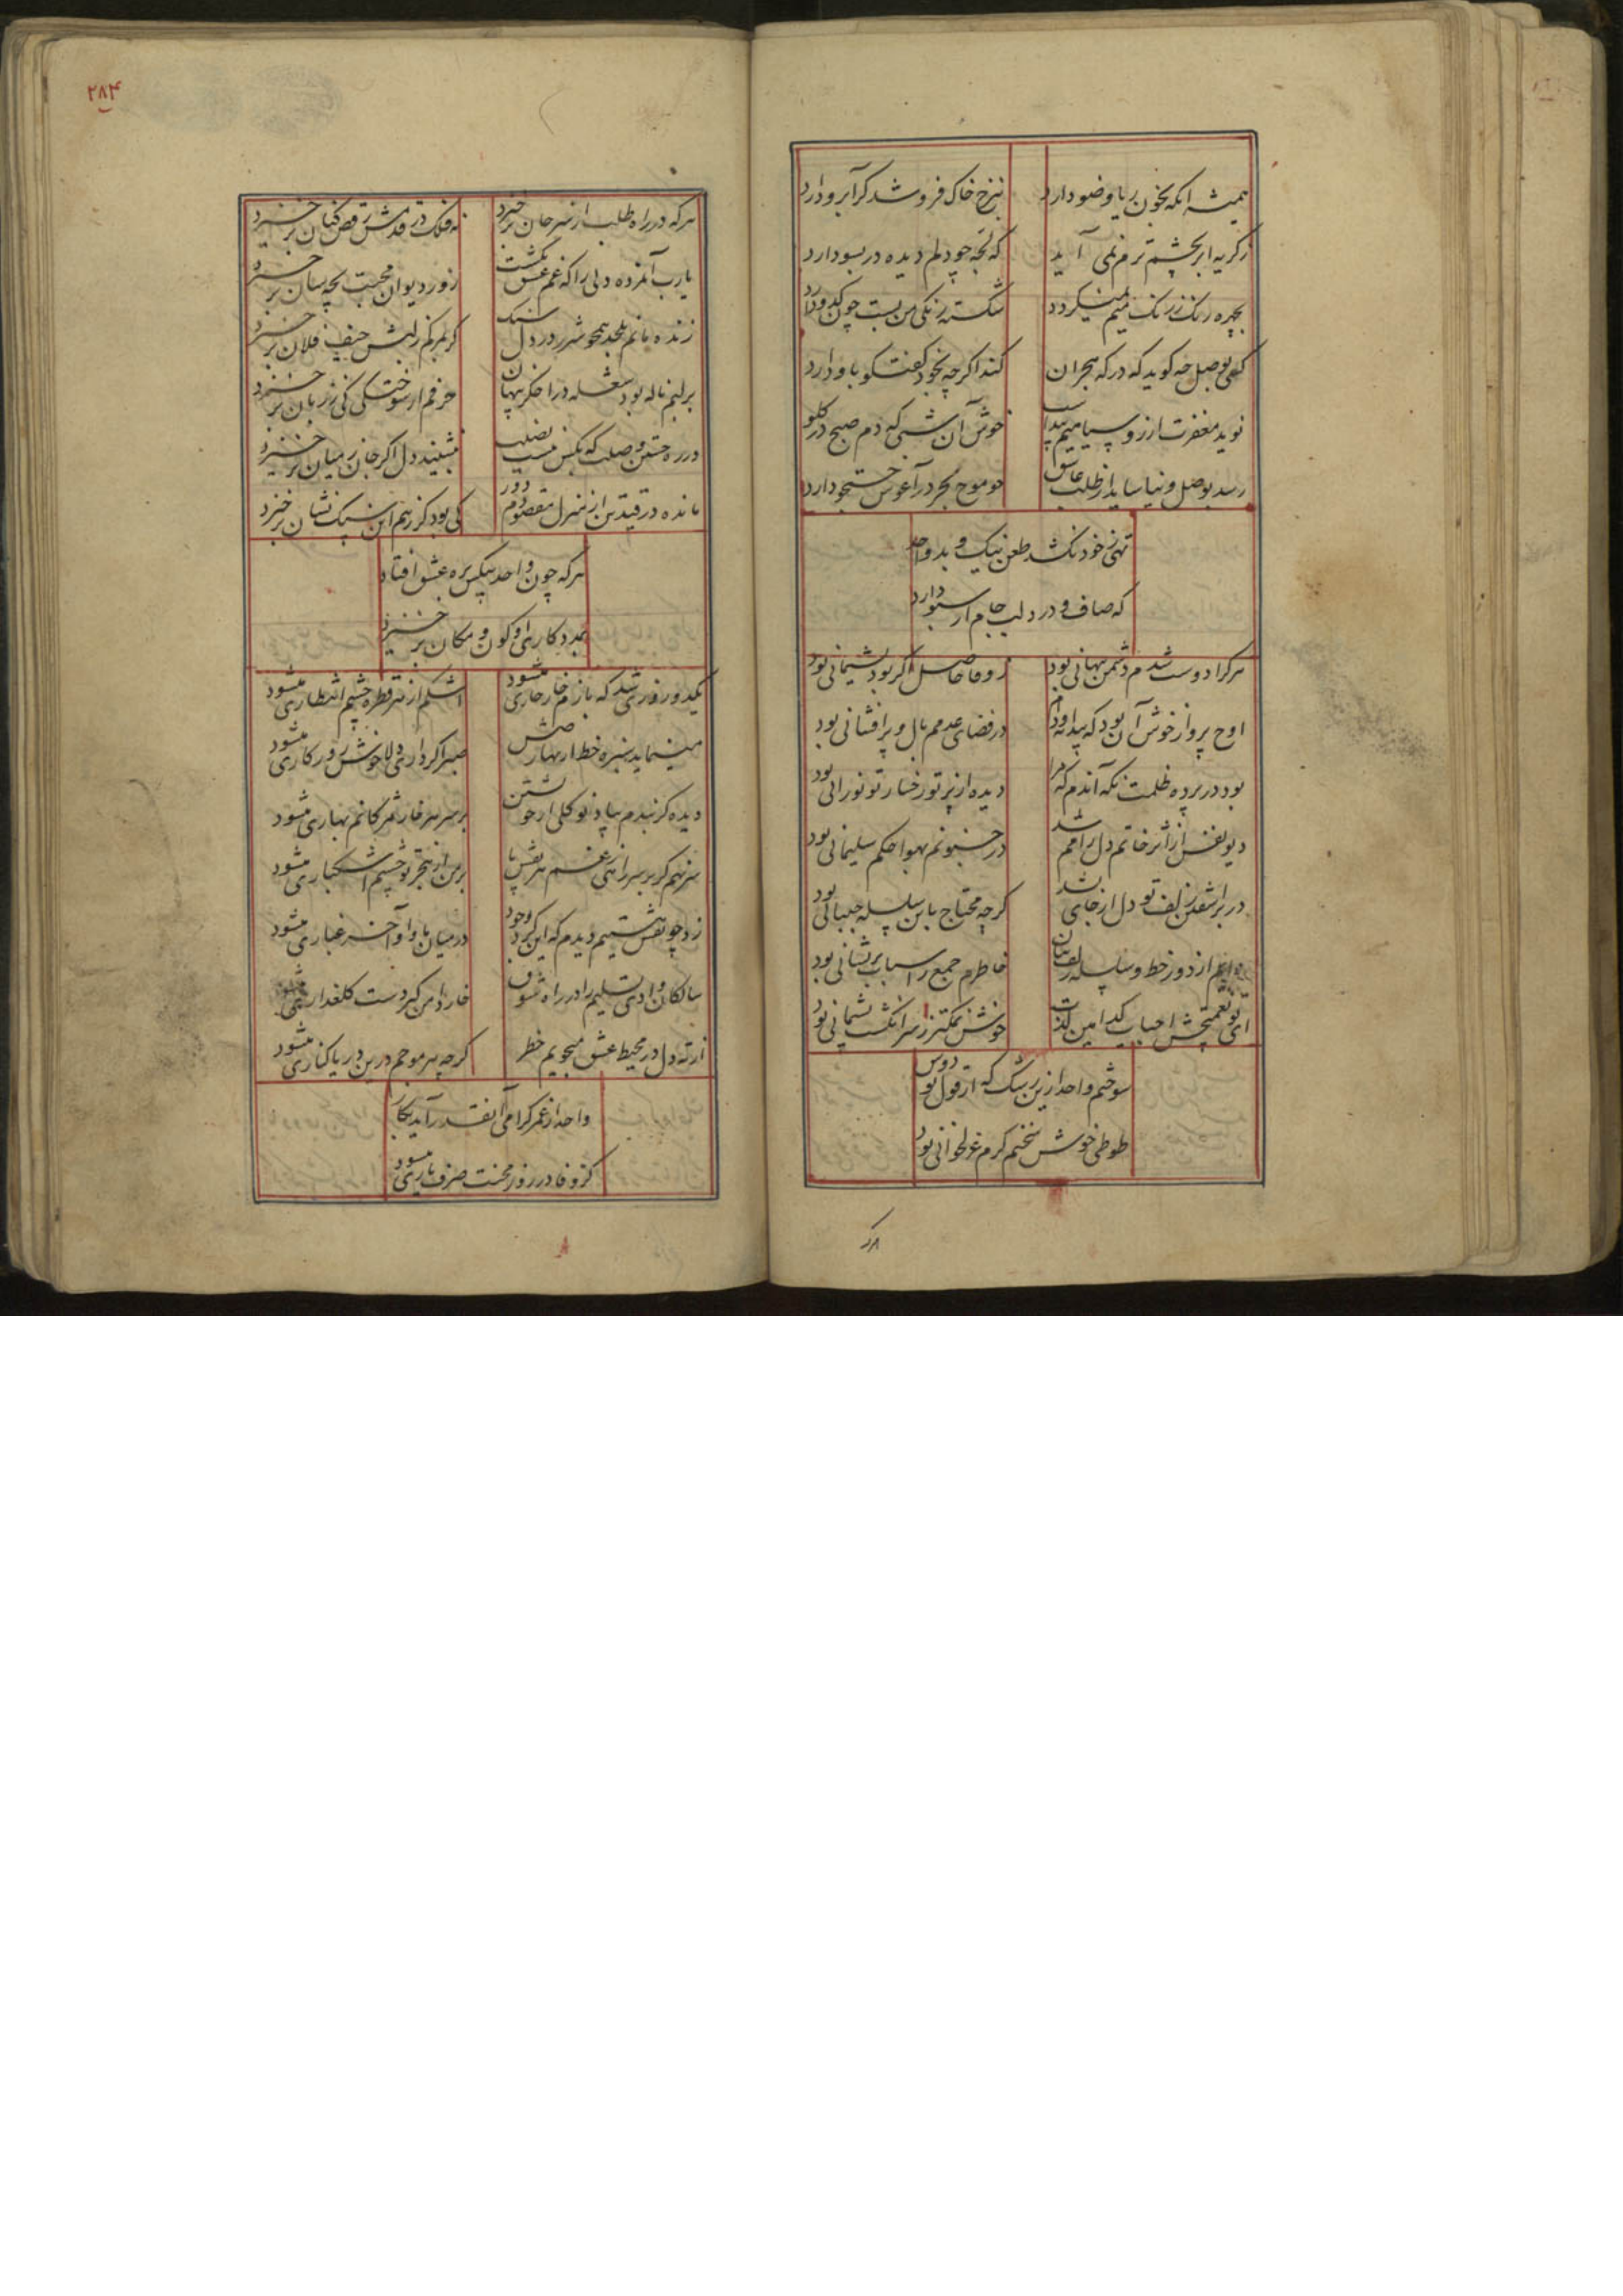 همیشه انکه بخون ریا وضو دارد
بنرخ خاک فروشد کر آبرو دارد
ز کریه ابر بچشم ترم نمی آید
که بچه چو دلم دیده در سبو دارد
بچهره رنک ز رنک
شکسته رنکی من بست چون کدو دارد
کهی بوصل چه کوید که در که هجران
کند اکرچه بخود کفتکو باو دارد
نوید مغفرت از روسیاهیم پیداست
خوش آن شبی که دم صبح در کلو دارد
رسد بوصل و نیاساید از طلب عاشق
چو موج بحر در آغوش جستجو دارد
تهی ز خود نکشد طعن نیک و بد واحد
که صاف و درد لب جام از سبو دارد
هر کرا دوست شدم دشمن پنهانی بود
از وفا حاصلم اکر بود پشیمانی بود
اوج پرواز خوش آن بود که پیدا
در فضای عدمم بال و پر افشانی بود
بود در پرده ظلمت نکه آندم که مرا
دیده از پرتو رخسار تو نورانی بود
دیو نفس از اثر خاتم دل رامم شد
در جنونم بهوا حکم سلیمانی بود
در برآشفتن زلف تو دل از جای نشد
کرچه محتاج باین سلسله جنبانی بود
از دور خط و سلسله زلف بتان
خاطرم جمع ز اسباب پریشانی بود
ای تو نعمتچش احباب کدامین لذت
خوش نمکتر ز سر انکشت پشیمانی بود
سوختم واحد ازین رشک که از قول تو دوش
طوطی خوش سخنم کرم غزلخوانی بود
۲۸۴
هر که در راه طلب از سر جان برخیزد
نه فلک در قدمش رقص کنان برخیزد
یارب آنمرده دلی را که غم عشق نکشت
روز دیوان محبت بچه سان برخیزد
زنده مانم بلحد همچو شرر در دل سنک
کر بمرکم ز لبش حیف فلان برخیزد
بر لبم ناله بود شعله در اخکر پنهان
حرفم از سوختکی کی ز زبان برخیزد
در ره جستن وصلت که بکس نیست نصیب
ننشیند دل اکر جان ز میان برخیزد
مانده در قید تن از منزل مقصودم دور
کی بود کز رهم این سنک نشان برخیزد
هر که چون واحد بیکس بره عشق افتاد
بمددکاری او کون و مکان برخیزد
یکدو روزی شد که بازم خار خاری میشود
اشکم از هر قطره چشم انتظاری میشود
مینماید سبزه خط از بهار
صبر اکر داری دلا خوش روزکاری میشود
دیده کر بندم بیاد نوکلی از خویشتن
بر سر هر خار مژکانم بهاری میشود
سر نهم کر بر سر زانوی غم هر نقش پا
بر من از هجر تو چشم اشکباری میشود
زد چو نقش هستیم دیدم که این کرد وجود
در میان ما و او آخر غباری میشود
سالکان وادی تسلیم را در راه شوق
خار دامن کیر دست کلعذاری میشود
از ته دل در محیط عشق میجویم خطر
کرچه هر موجم درین دریا کناری میشود
واحد از عمر کرامی آنقدر آید بکار
کز وفا در روز محنت صرف یاری میشود